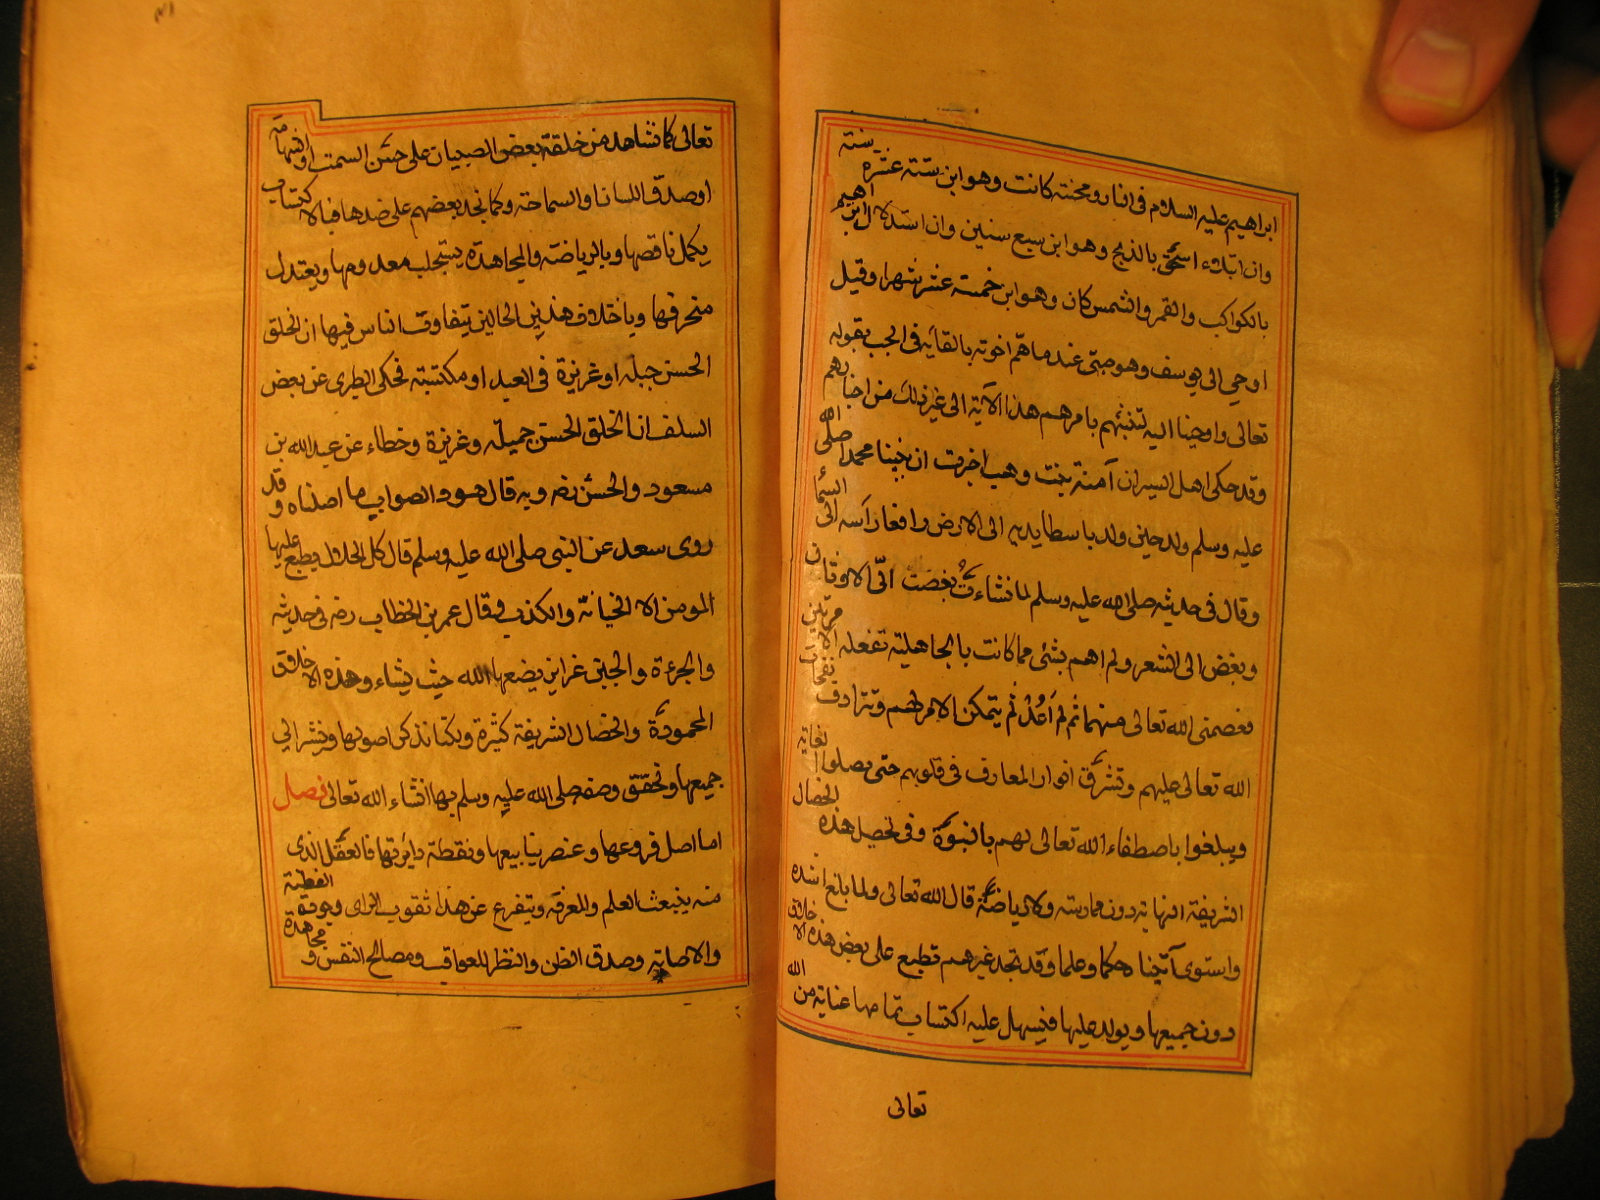 ابراهيم عليه السلام فى النار ومحنته كانت وهو ابن ستة عشره سنته
وان ابتلاء اسحٰق بالذبح وهو ابن سبع سنين وان استدلال ابراهيم
بالكواكب والقمر والشمس كان وهو ابن خمسة عشر شهرا وقيل
اوحي الى يوسف وهو صبّى عند ما همّ اخوته بالقائه فى الجب بقوله
تعالى واوحينا اليه لتنبئهم بامرهم هذا الآية الى غير ذلك من اخبارهم
وقد حكى اهل السير ان آمنة بنت وهب اخبرت ان نبينا محمدا صلى الله
عليه وسلم ولد حين ولد باسطا يديه الى الارض رافعا راسه الى السما
وقال فى حديثه صلى الله عليه وسلم لما نشاءت بغضت الىّ الاوثان
وبغض الى الشعر ولم اهم بشئ مما كانت بالجاهلية تفعله الا مرتين
فعصمنى الله تعالى منهما ثم لم اعد ثم يتمكن الامر لهم وتترادف نفحات
الله تعالى عليهم وتشرق انوار المعارف فى قلوبهم حتى يصلوا الغاية
ويبلغوا باصطفاء الله تعالى لهم بالنبوة وفى تحصل هذه الخصال
الشريفة النهاية دون ممارسته ولا رياضة قال الله تعالى ولما بلغ اشده
واستوى آتيناه حكما وعلما وقد نجد غيرهم قطبع على بعض هذه الاخلاق
دون جميعها ويولد عليها فيسهل عليه اكتساب تمامها عناية من الله
تعالى
تعالى كما نشاهد من خلقة بعض الصبيان على حسن السمت او الشهامة
او صدق اللسان او السماحة وكما نجد بعضهم على ضدها فبالاكتساب
يكمل ناقصها وبالرياضة والمجاهدة يستجلب معدومها ويعتدل
منحرفها وباختلاف هذين الحالين يتفاوت الناس فيها ان الخلق
الحسن جبلة او غريزة فى العبد او مكتسبة فحكى الطبرى عن بعض
السلف ان الخلق الحسن جميلة وغريزة وخطاء عن عبد الله بن
مسعود والحسن رضه وبه قال هود الصواب ما اصلناه وقد
روى سعد عن النبى صلى الله عليه وسلم قال كل الخلال يطبع عليها
المومن الا الخيانة والكذب وقال عمر بن الخطاب رضه فى حديثه
والجرءة والجبن غرايز يضعها الله حيث يشاء وهذه الاخلاق
المحمودة والخصال الشريفة كثيرة ولكنا نذكر اصولها ونشر الى
جميعها ونحقق وصفه صلى الله عليه وسلم بها انشاء الله تعالى فصل
اما اصل فروعها وعنصر ينابيعها ونقطة دايرتها فالعقل الذى
منه ينبعث العلم والمعرفة ويتفرع عن هذا ثقوب الراى وجودة الفطنة
والاصابة وصدق الظن والنظر للعواقب ومصالح النفس ومجاهدة